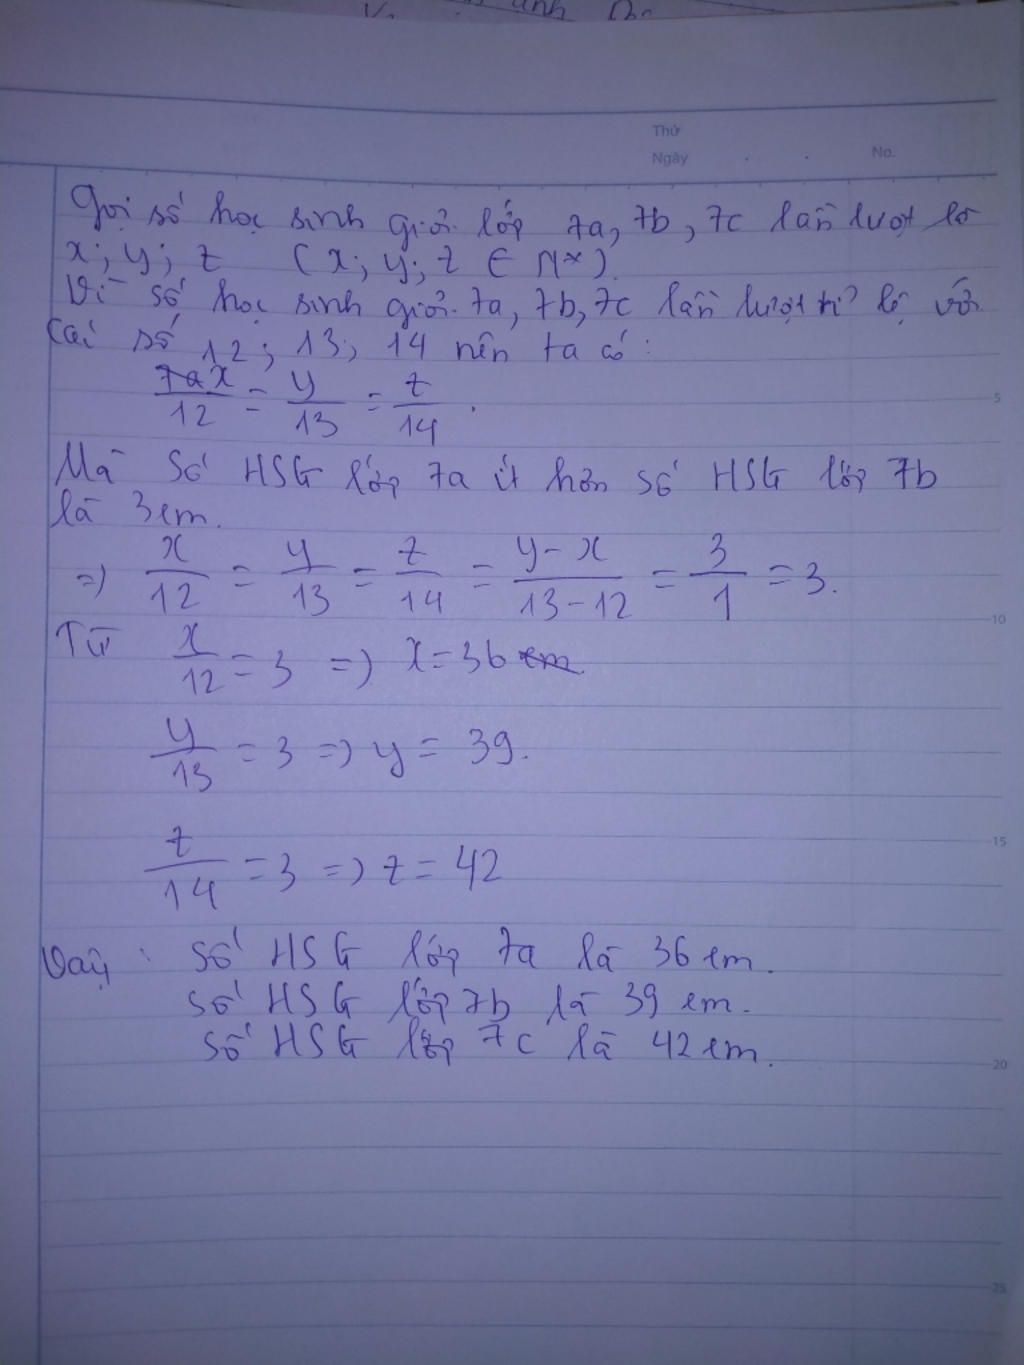 Thứ
Ngày . . No.
Gọi số học sinh giỏi lớp 7a, 7b, 7c lần lượt là
x; y; z (x; y; z ∈ N*).
Vì số học sinh giỏi 7a, 7b, 7c lần lượt tỉ lệ với
các số 12; 13; 14 nên ta có:
x/12 = y/13 = z/14.
5
Mà số HSG lớp 7a ít hơn số HSG lớp 7b
là 3 em.
=> x/12 = y/13 = z/14 = y-x/13-12 = 3/1 = 3.
10
Từ x/12 = 3 => x = 36
y/13 = 3 => y = 39.
z/14 = 3 => z = 42
15
Vậy: Số HSG lớp 7a là 36 em.
số HSG lớp 7b là 39 em.
số HSG lớp 7c là 42 em.
20
25